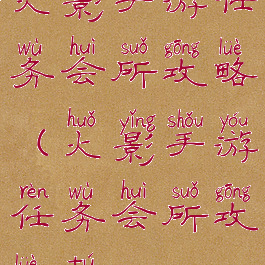 火影手游任
wù huì suǒ gōng lüè
务会所攻略
huǒ yǐng shǒu yóu
（火影手游
rèn wù huì suǒ gōng
任务会所攻
lüè tú